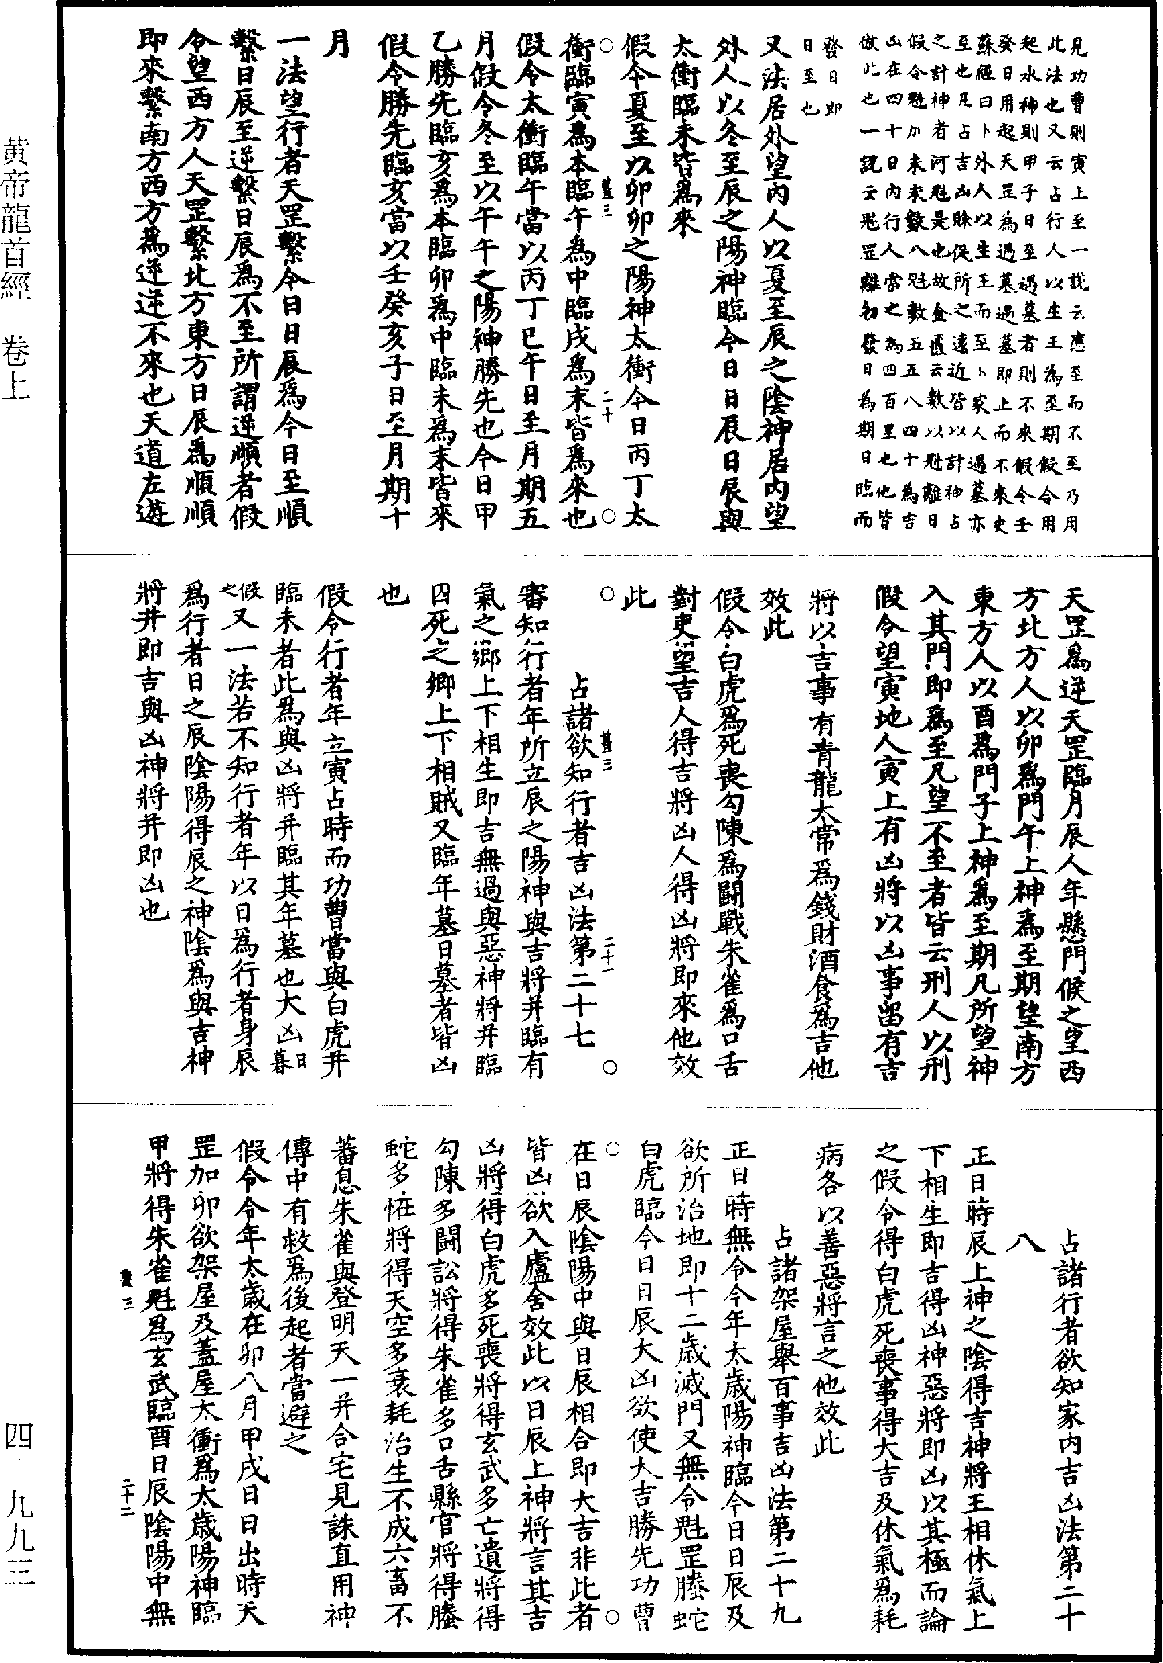 見功曹則寅上至一説云應至而不至乃用
此法也又云占行人以生王為至期假令用
起水神則甲子日至遇墓者則不來假令壬
癸日用起天罡為遇墓遇墓即止而不來史
蘇經曰卜外人以生至而至卜家人遇墓亦
至也凡占吉凶賒促所之遠近皆以計神占
之計神者河魁是也故金匱云數以魁離日
假令魁加未未數八魁數五五八四十為吉
凶在四十日內行人當之為四百里也他皆
倣此也一説云魁罡離初發日為期日臨而
發日即
日至也
又法居外望內人以夏至辰之陰神居內望
外人以冬至辰之陽神臨今日日辰日辰與
太衝臨未皆為來
假令夏至以卯卯之陽神太衝今日丙丁太
衝臨寅為本臨午為中臨戌為末皆為來也
假令太衝臨午當以丙丁巳午日至月期五
月假令冬至以午午之陽神勝先也今日甲
乙勝先臨亥為本臨卯為中臨未為末皆來
假令勝先臨亥當以壬癸亥子日至月期十
月
一法望行者天罡繫今日日辰為今日至順
繫日辰至逆繫日辰為不至所謂逆順者假
令望西方人天罡繫北方東方日辰為順順
即來繫南方西方為逆逆不來也天道左遊
天罡為逆天罡臨月辰人年懸門候之望西
方北方人以卯為門午上神為至期望南方
東方人以酉為門子上神為至期凡所望神
入其門即為至凡望不至者皆云刑人以刑
假令望寅地人寅上有凶將以凶事留有吉
將以吉事有青龍太常為錢財酒食為吉他
效此
假令白虎為死喪勾陳為鬭戰朱雀為口舌
對吏留吉人得吉將凶人得凶將即來他效
此
占諸欲知行者吉凶法第二十七
審知行者年所立辰之陽神與吉將并臨有
氣之鄉上下相生即吉無過與惡神將并臨
四死之鄉上下相賊又臨年墓日墓者皆凶
也
假令行者年立寅占時而功曹當與白虎并
臨未者此為與凶將并臨其年墓也大凶日墓
假之又一法若不知行者年以日為行者身辰
為行者日之辰陰陽得辰之神陰為與吉神
將并即吉與凶神將并即凶也
占諸行者欲知家內吉凶法第二十
八
正日時辰上神之陰得吉神將王相休氣上
下相生即吉得凶神惡將即凶以其極而論
之假令得白虎死喪事得大吉及休氣為耗
病各以善惡將言之他效此
占諸架屋舉百事吉凶法第二十九
正日時無令今年太歲陽神臨今日日辰及
欲所治地即十二歲滅門又無令魁罡螣蛇
白虎臨今日日辰大凶欲使大吉勝先功曹
在日辰陰陽中與日辰相合即大吉非此者
皆凶欲入廬舍效此以日辰上神將言其吉
凶將得白虎多死喪將得玄武多亡遺將得
勾陳多鬪訟將得朱雀多口舌縣官將得螣
蛇多怪將得天空多衰耗治生不成六畜不
蕃息朱雀與登明天一并合宅見誅直用神
傳中有救為後起者當避之
假令今年太歲在卯八月甲戌日日出時天
罡加卯欲架屋及蓋屋太衝為太歲陽神臨
甲將得朱雀魁為玄武臨酉日辰陰陽中無
黃帝龍首經 卷上
四·九九三